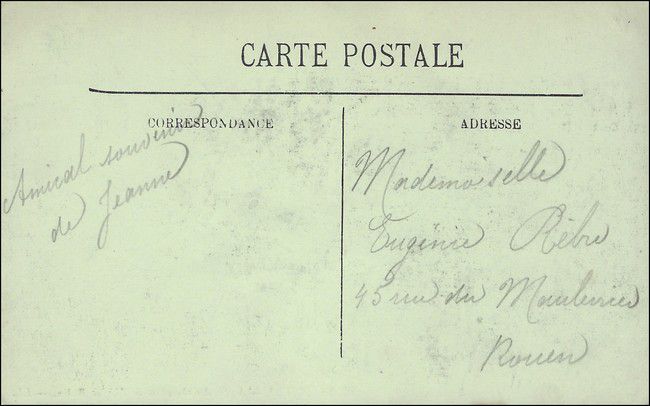 CARTE POSTALE
CORRESPONDANCE
ADRESSE
Amical souvenir
de Jeanne
Mademoiselle
Eugénie
45 rue du
Rouen